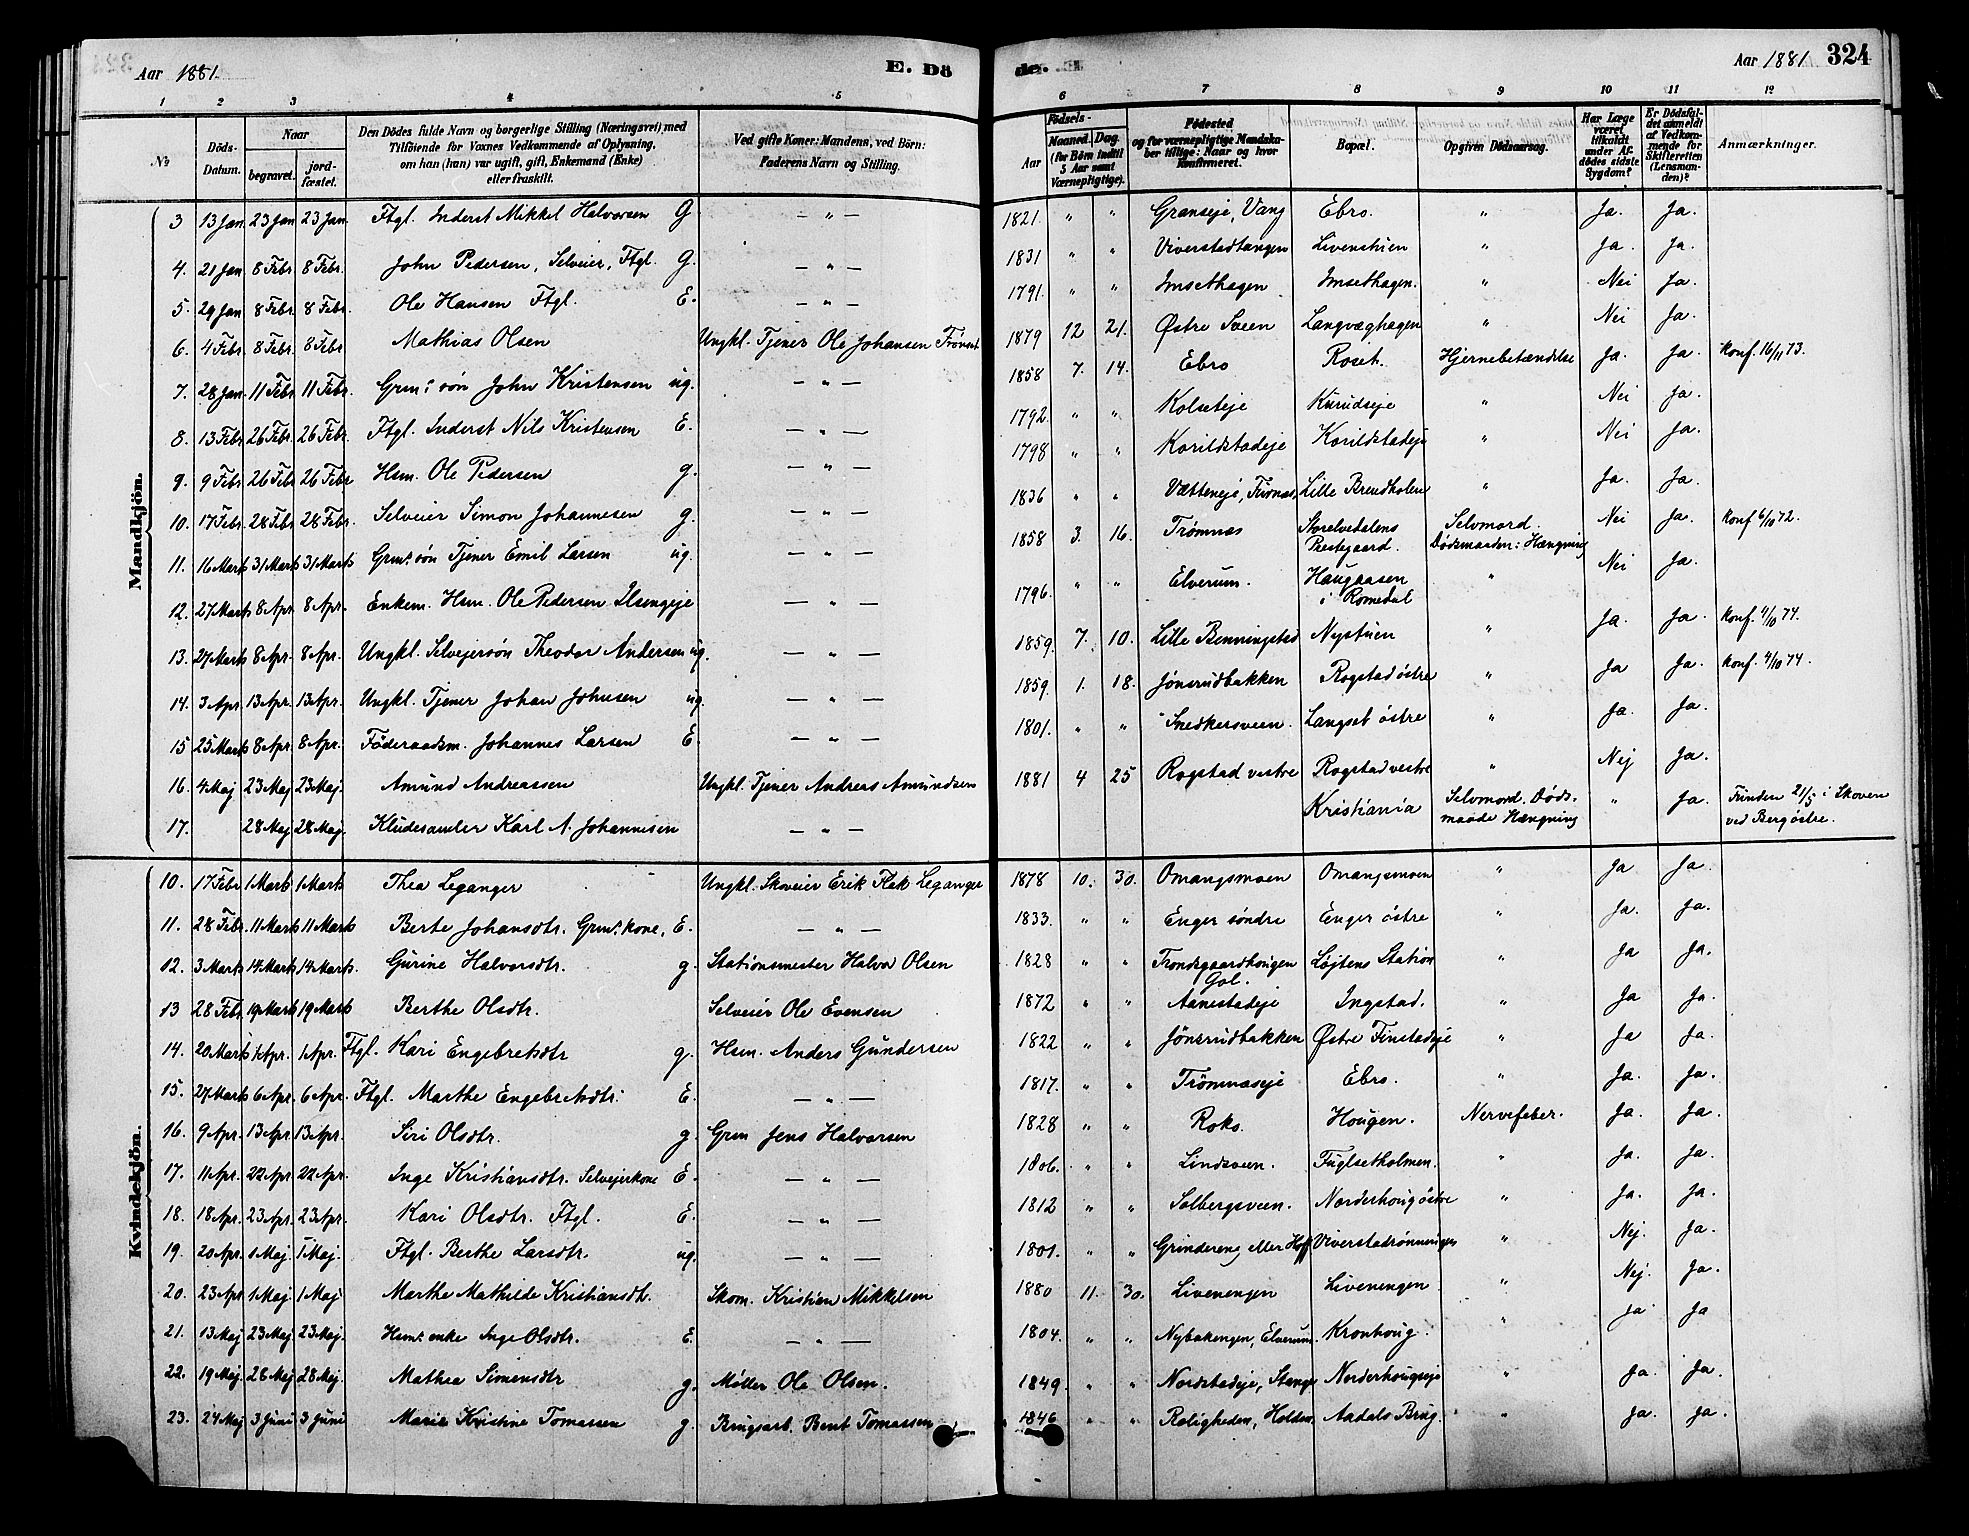 Aar 1881.
E. Dö
de. E.
Aar 1881. 324
1 2 3 4 5 6 7 8 9 10 11 12
No
Döds-Datum.
Naar
begravet.
jord-fæstet.
Den Dödes fulde Navn og borgerlige Stilling (Næringsvei), med
Tilföiende for Voxnes Vedkommende af Oplysning,
om han (hun) var ugift, gift, Enkemand (Enke)
eller fraskilt.
Ved gifte Koner: Mandens, ved Börn:
Faderens Navn og Stilling.
Födsels-
Aar
Maaned. Dag.
(for Börn indtil
5 Aar samt
Værnepligtige).
Födested
og for værnepligtige Mandska-
ber tillige: Naar og hvor
konfirmeret.
Bopæl.
Opgiven Dödsaarsag.
Har Læge
været
tilkaldt
under Af-
dödes sidste
Sygdom?
Er Dödsfal-
det anmeldt
af Vedkom-
mende for
Skifteretten
(Lensman-
den)?
Anmærkninger.
Mandkjön.
3 13 Jan 23 Jan 23 Jan. Ftgl. Inderst Mikkel Halvorsen G — " — 1821. " " Granseje, Vang Ebro. " Ja. Ja.
4. 21 Jan 8 Febr 8 Febr. John Pedersen, Selveier, Ftgl. G. — " — 1831 " " Viverstadtangen Livenshien " Ja. Ja.
5. 29 Jan 8 Febr 8 Febr. Ole Hansen Ftgl. E. — " — 1791. " " Imsethagen Imsethagen. " Nei Ja.
6. 4 Febr. 8 Febr 8 Febr Mathias Olsen Ungkl. Tjener Ole Johansen Trönset 1879 12 21. Østre Sveen Langvæghagen " Nei Ja.
7. 28 Jan. 11 Febr. 11 Febr. Grm.s sön John Kristensen ug. — " — 1858 7. 14. Ebro Roset. Hjernebetændelse Ja. Ja. Konf. 16/11 73.
8. 13 Febr 26 Febr. 26 Febr. Ftgl. Inderst Nils Kristensen E. — " — 1792. " " Kolseteje Kurudseje " Nei Ja.
9. 9 Febr 26 Febr 26 Febr Hsm. Ole Pedersen g. — " — 1798 " " Korildstadeje Korildstadeje " Nei Ja.
10. 17 Febr. 28 Febr 28 Febr. Selveier Simon Johannesen g. — " — 1836 " " Vætteneje, Furnæs, Lille Brendholen " Ja. Ja.
11. 16 Marts 31 Marts 31 Marts Grm.s sön Tjener Emil Larsen ug. — " — 1858 3. 16. Trømnæs Storelvedalens Prestegaard. Selvmord. Dødsmaaden: Hængning Nei Ja. Konf 6/10 72.
12. 27 Marts 8 Apr. 8 Apr. Enkem. Hsm. Ole Pedersen Ilsengeje — " — 1796. " " Elverum. Haugaasen i Romedal " Nei Ja.
13. 27 Marts 8 Apr. 8 Apr. Ungkl. Selvejersön Theodor Andersen ug. — " — 1859. 7. 10. Lille Benningstad Nystuen " Ja. Ja. Konf. 4/10 74.
14. 3 Apr. 13 Apr. 13 Apr. Ungkl. Tjener Johan Johnsen ug. — " — 1859. 1. 18. Jönsrudbakken Rogstad östre " Ja Ja. Konf. 4/10 74.
15 25 Marts 8 Apr. 8 Apr. Föderaadsm. Johannes Larsen E. — " — 1801. " " Snedkersveen. Langset östre " Ja. Ja.
16. 4 Maj 23 Maj 23 Maj. Amund Andreassen Ungkl. Tjener Andreas Amundsen 1881 4 25 Rogstad vestre Rogstad vestre " Nej Ja.
17. 28 Maj 28 Maj. Kludesamler Karl A. Johannesen — " — Kristiania Selvmord. Döds-maade Hængning " Ja. Funden 21/5 i Skoven ved Berg östre.
Kvindekjön.
10. 17 Febr 1 Marts 1 Marts Thea Leganger Ungkl. Skoveier Erik Flek Leganger 1878 10. 30. Omangsmoen Omangsmoen " Ja Ja.
11. 28 Febr. 11 Marts 11 Marts Berte Johansdtr. Grm.s kone, E. — " — 1833. " " Enger söndre Enger östre " Ja. Ja.
12. 3 Marts 14 Marts 14 Marts. Gurine Halvorsdtr. g. Stationsmester Halvor Olsen 1828 " " Trondsgaardhougen Gol. Løjtens Station " Ja Ja.
13 28 Febr. 19 Marts 19 Marts Berthe Olsdtr. Selveier Ole Evensen 1872 " " Aanestadeje Ingstad. " Ja Ja.
14. 20 Marts 1 Apr. 1 Apr. Ftgl. Kari Engebretsdtr g. Hsm. Anders Gundersen 1822 " " Jönsrudbakken Østre Finstadeje " Ja Ja.
15. 27 Marts 6 Apr. 6 Apr. Ftgl. Marthe Engebretsdtr. E. — " — 1817. " " Trömnæseje Ebro. " Ja. Ja.
16. 9 Apr. 13 Apr. 13 Apr. Siri Olsdtr. g. Grm Jens Halvorsen 1828 " " Roko. Hougen. Nervefeber. Ja. Ja.
17. 11 Apr. 22 Apr. 22 Apr. Inge Kristiansdtr. Selvejerkone E. — " — 1806. " " Lindsveen. Fuglsetholmen. " Ja. Ja.
18. 18 Apr. 23 Apr. 23 Apr. Kari Olsdtr. Ftgl. E. — " — 1812 " " Solbergsveen. Norderhoug östre " Ja. Ja.
19. 20 Apr. 1 Maj. 1 Maj. Ftgl. Berthe Larsdtr. ug. — " — 1801. " " Grindereng eller Hoff Viverstadrønningen " Nej. Ja.
20. 23 Apr 1 Maj. 1 Maj Marthe Mathilde Kristiansdtr. Skom. Kristian Mikkelsen 1880 11. 30. Livenengen Livenengen " Nej. Ja.
21. 13 Maj 23 Maj 23 Maj. Hsm.s enke Inge Olsdtr. E. — " — 1804. " " Nybakengen, Elverum. Kronhoug. " Ja. Ja
22. 19 Maj. 28 Maj 28 Maj. Mathea Simensdtr g. Møller Ole Olsen. 1849. " " Nordstadeje, Stange Norderhougseje " Ja. Ja.
23. 24 Maj 3 Juni 3 Juni Marie Kristine Tomassen g. Brugsarb. Bent Tomassen 1846 " " Roligheden, Holden. Aadals Brug. " Ja. Ja.